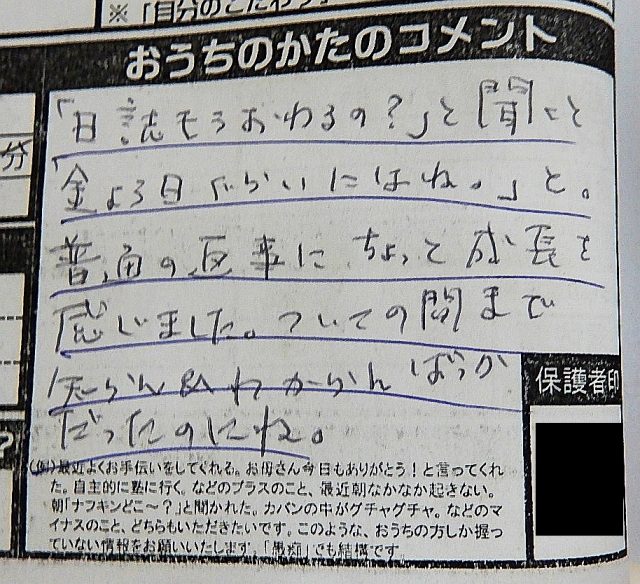 ※「自分のこだわり
おうちのかたのコメント
「日誌もうおわるの?」と聞くと
「金よう日ぐらいにはね。」と。
普通の返事にちょっと成長を
感じました。ついこの間まで
知らん&わからんばっか
だったのにね。
分
保護者印
?
(例)最近よくお手伝いをしてくれる。お母さん今日もありがとう!と言ってくれ
た。自主的に塾に行く。などのプラスのこと、最近朝なかなか起きない。
朝「ナフキンどこ〜?」と聞かれた。カバンの中がグチャグチャ。などのマ
イナスのこと、どちらもいただきたいです。このような、おうちの方しか握っ
ていない情報をお願いいたします。「愚痴」でも結構です。